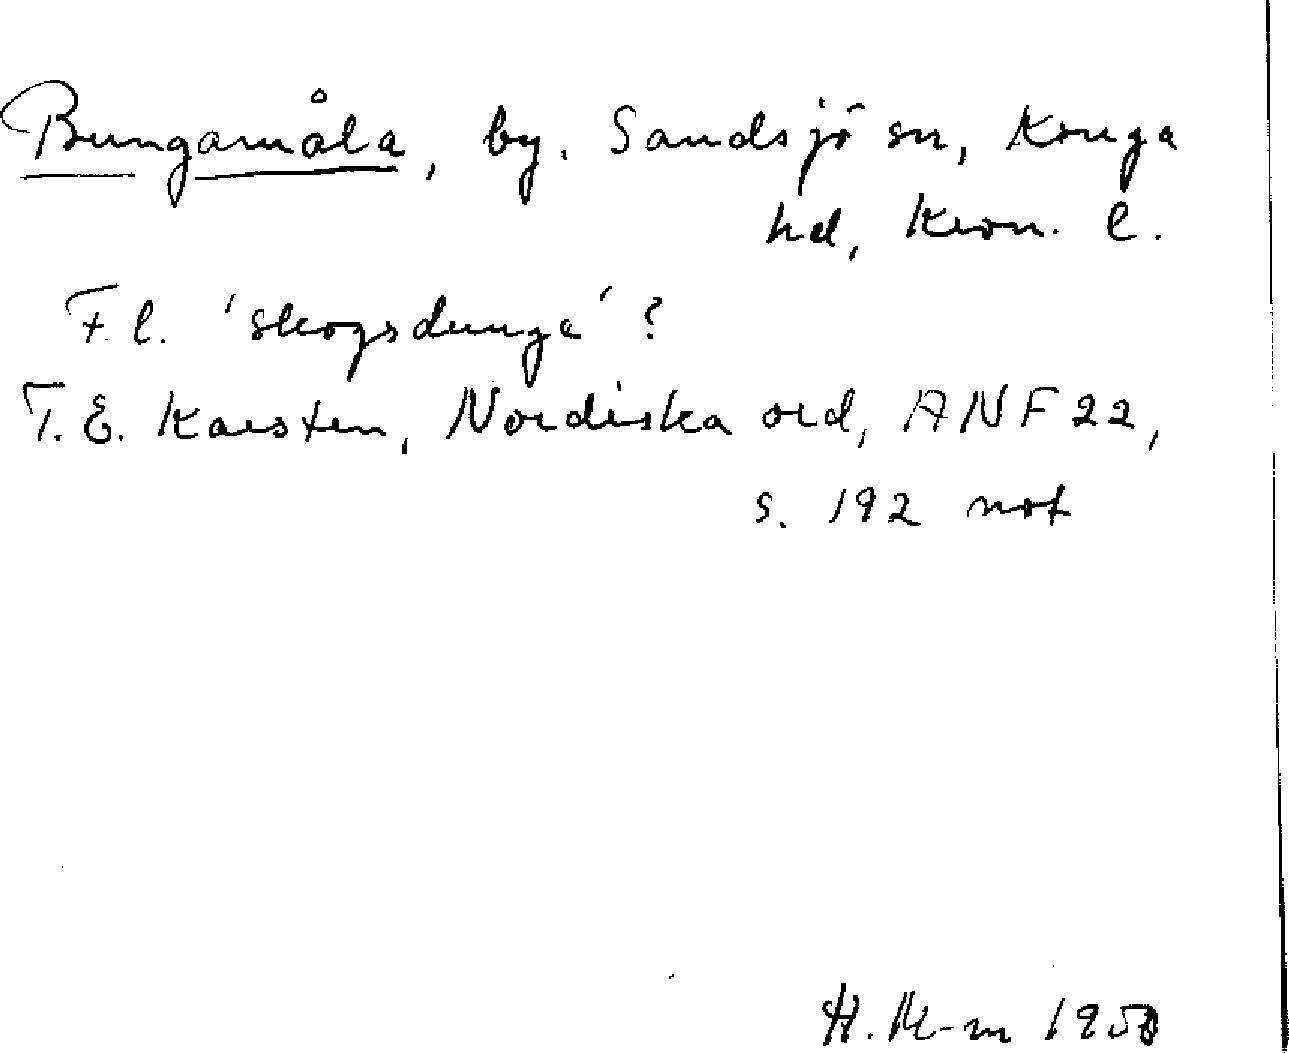 Bungamåla, by. Sandsjö sn, Konga
hd, Kron. l.
F.l. 'skogsdunge'?
T.E. Karsten, Nordiska ord, ANF 22,
s. 192 not
H. 1950